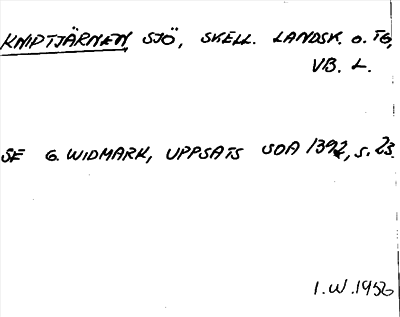 KNIPTJÄRNEN SJÖ, SKELL. LANDSK. O. TG,
VB. L.
SE G. WIDMARK, UPPSATS SOA 1392, S. 23.
I.W.1956